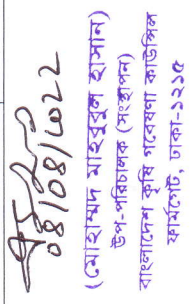 ০৪/০৪/২০২২
(মোহাম্মদ মাহবুবুল হাসান)
উপ-পরিচালক (সংস্থাপন)
বাংলাদেশ কৃষি গবেষণা কাউন্সিল
ফার্মগেট, ঢাকা-১২১৫